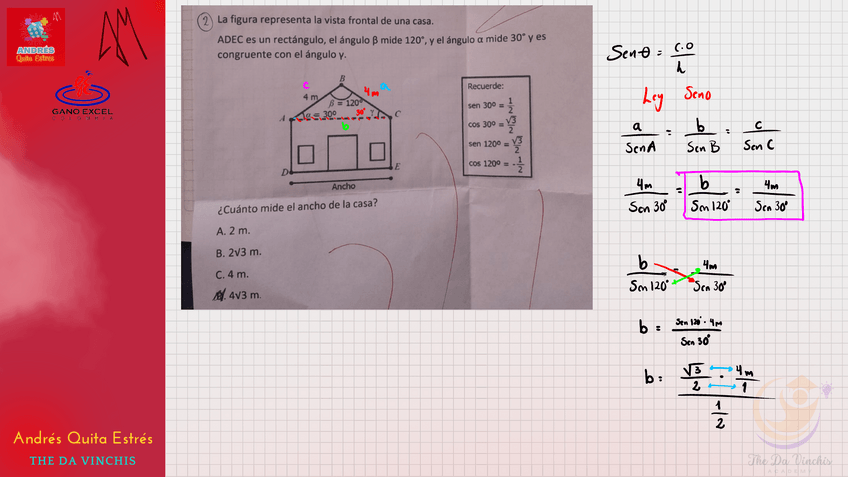 ANDRÉS
Quita Estres
GANO EXCEL
2 La figura representa la vista frontal de una casa.
ADEC es un rectángulo, el ángulo β mide 120°, y el ángulo α mide 30° y es
congruente con el ángulo γ.
c
B
4 m
4m
a
β = 120°
A
α = 30°
30°
γ
C
b
D
E
Ancho
Recuerde:
sen 30º = 1/2
cos 30º = √3/2
sen 120º = √3/2
cos 120º = -1/2
¿Cuánto mide el ancho de la casa?
A. 2 m.
B. 2√3 m.
C. 4 m.
4√3 m.
Sen θ = c.o/h
Ley Seno
a/SenA = b/Sen B = c/Sen C
4m/Sen 30° = b/Sen 120° = 4m/Sen 30°
b/Sen 120° = 4m/Sen 30°
b = Sen 120° · 4m/Sen 30°
b = √3/2 · 4m/1
1/2
Andrés Quita Estrés
THE DA VINCHIS
The Da Vinchis
ACADEMY